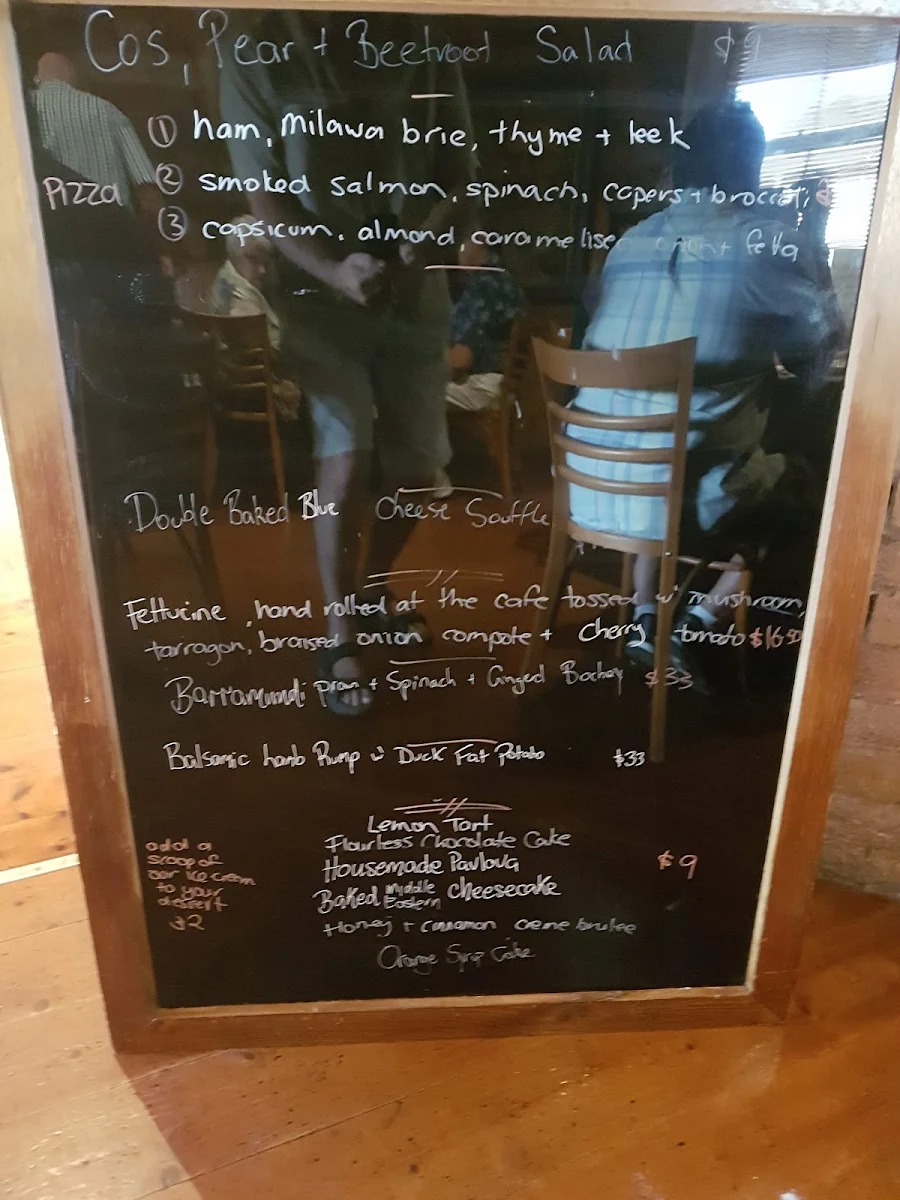 Cos, Pear + Beetroot Salad $9
① ham, Milawa brie, thyme + leek
Pizza ② smoked salmon, spinach, capers + broccoli
③ capsicum, almond, caramelised onion + fetta
Double Baked Blue Cheese Souffle
Fettucine, hand rolled at the cafe tossed w' mushroom,
tarragon, braised onion compote + cherry tomato $16.50
Barramundi Prawn + Spinach + Ginger $33
Balsamic Lamb Rump w' Duck Fat Potato $33
Lemon Tart
Flourless Chocolate Cake
Housemade Pavlova $9
Baked Middle Eastern cheesecake
Honey + cinnamon creme brulee
Orange Syrup Cake
add a
scoop of
our ice cream
to your
dessert
$2